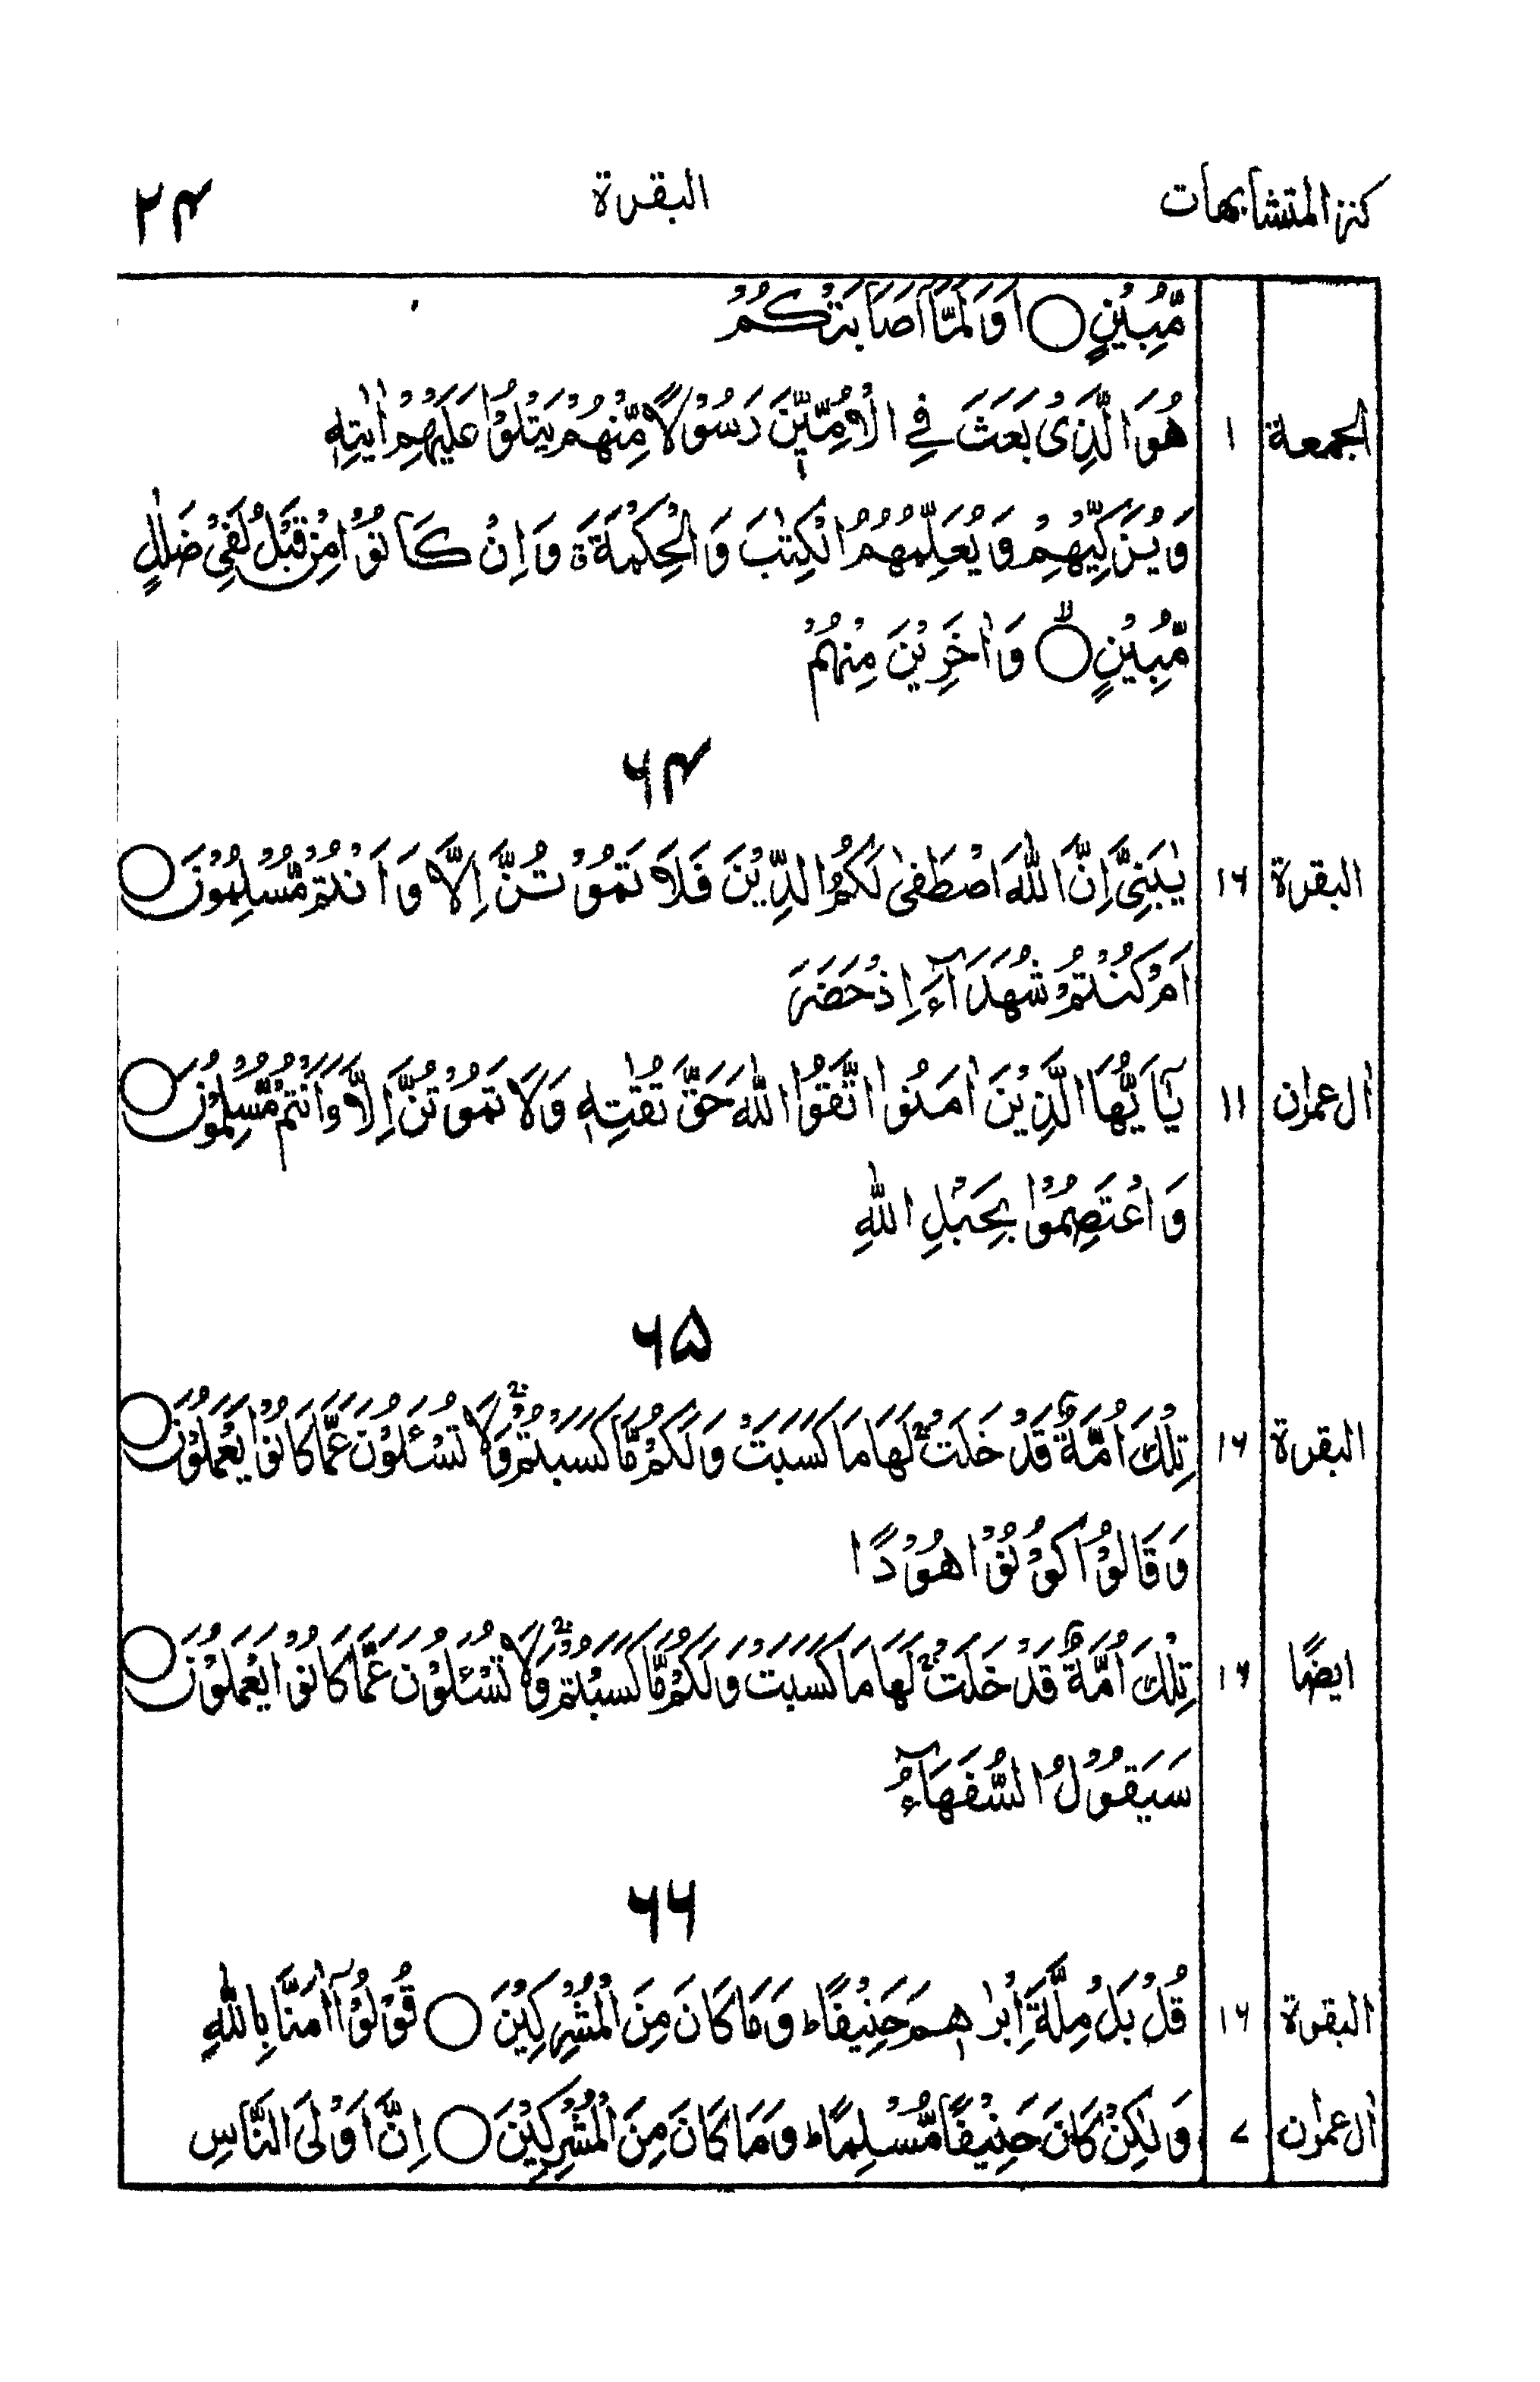 كنز المتشابهات البقرة ۲۴
مُّبِيْنٍ ○ اَوَلَمَّآ اَصَابَتْكُمْ
الجمعة ۱ هُوَ الَّذِيْ بَعَثَ فِي الْاُمِّيّٖنَ رَسُوْلًا مِّنْهُمْ يَتْلُوْا عَلَيْهِمْ اٰيٰتِهٖ
وَيُزَكِّيْهِمْ وَيُعَلِّمُهُمُ الْكِتٰبَ وَالْحِكْمَةَ ۗ وَاِنْ كَانُوْا مِنْ قَبْلُ لَفِيْ ضَلٰلٍ
مُّبِيْنٍ ○ۙ وَّاٰخَرِيْنَ مِنْهُمْ
۶۴
البقرة ۱۶ يٰبَنِيَّ اِنَّ اللّٰهَ اصْطَفٰى لَكُمُ الدِّيْنَ فَلَا تَمُوْتُنَّ اِلَّا وَاَنْتُمْ مُّسْلِمُوْنَ ○
اَمْ كُنْتُمْ شُهَدَآءَ اِذْ حَضَرَ
اٰل عمران ۱۱ يٰٓاَيُّهَا الَّذِيْنَ اٰمَنُوا اتَّقُوا اللّٰهَ حَقَّ تُقٰتِهٖ وَلَا تَمُوْتُنَّ اِلَّا وَاَنْتُمْ مُّسْلِمُوْنَ ○
وَاعْتَصِمُوْا بِحَبْلِ اللّٰهِ
۶۵
البقرة ۱۶ تِلْكَ اُمَّةٌ قَدْ خَلَتْ ۚ لَهَا مَا كَسَبَتْ وَلَكُمْ مَّا كَسَبْتُمْ ۚ وَلَا تُسْـَٔلُوْنَ عَمَّا كَانُوْا يَعْمَلُوْنَ ○
وَقَالُوْا كُوْنُوْا هُوْدًا
ايضًا ۱۶ تِلْكَ اُمَّةٌ قَدْ خَلَتْ ۚ لَهَا مَا كَسَبَتْ وَلَكُمْ مَّا كَسَبْتُمْ ۚ وَلَا تُسْـَٔلُوْنَ عَمَّا كَانُوْا يَعْمَلُوْنَ ○
سَيَقُوْلُ السُّفَهَآءُ
۶۶
البقرة ۱۶ قُلْ بَلْ مِلَّةَ اِبْرٰهٖمَ حَنِيْفًا ؕ وَمَا كَانَ مِنَ الْمُشْرِكِيْنَ ○ قُوْلُوْٓا اٰمَنَّا بِاللّٰهِ
اٰل عمران ۷ وَلٰكِنْ كَانَ حَنِيْفًا مُّسْلِمًا ؕ وَمَا كَانَ مِنَ الْمُشْرِكِيْنَ ○ اِنَّ اَوْلَى النَّاسِ